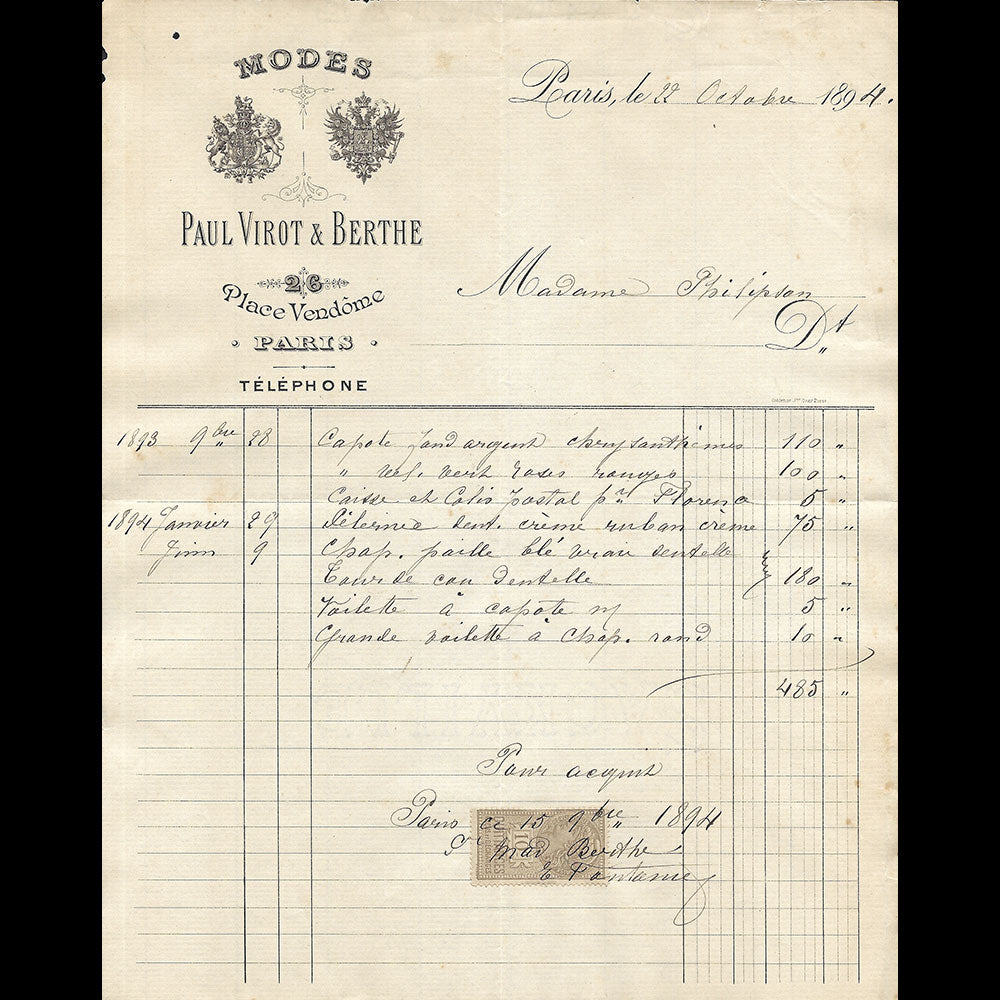 MODES
PAUL VIROT & BERTHE
26
Place Vendôme
PARIS
TÉLÉPHONE
Paris, le 22 Octobre 1894.
Madame Philipson
Dt
1893 9bre 28 Capote fond argent chrysanthèmes 110 "
" vel. vert roses rouges 100 "
Caisse et Colis postal pr Florence 5 "
1894 Janvier 29 Pèlerine dent. crème ruban crème 75 "
Juin 9 Chap. paille blé vraie dentelle
Tour de cou dentelle 180 "
Voilette à capote 5 "
Grande voilette à Chap. rond 10 "
485 "
Pour acquit
Paris ce 15 9bre 1894
Pr Berthe
10c